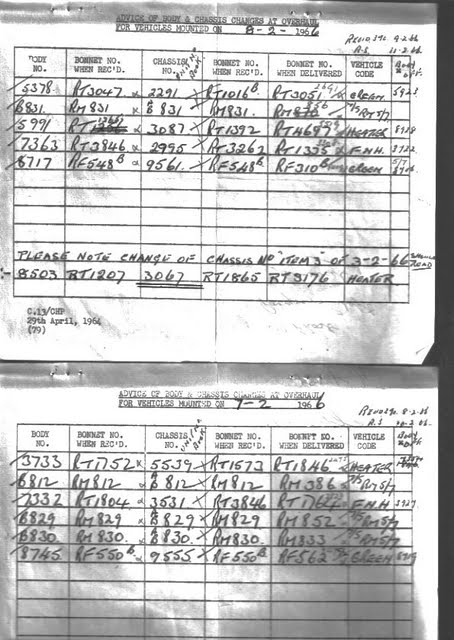 ADVICE OF BODY & CHASSIS CHANGES AT OVERHAUL
FOR VEHICLES MOUNTED ON 8-2- 1966
9-2-66
A.S 11-2-66
BODY NO. BONNET NO. WHEN REC'D. CHASSIS NO. BONNET NO. WHEN REC'D. BONNET NO. WHEN DELIVERED VEHICLE CODE
5378 RT3047 2291 RT1016 RT3051 GREEN
B831 RM831 B831 RM831 RM 5/7
5991 3087 RT1392 RT4697 HEATER
7363 RT3846 2995 RT3262 F.N.H.
8717 RF548B 9561 RF548B RF310B GREEN
PLEASE NOTE CHANGE OF CHASSIS NO "ITEM 3" OF 3-2-66 SHOULD READ
8503 RT1207 3067 RT1865 RT3176 HEATER
C.13/CHP
29th April, 1964
(79)
ADVICE OF BODY & CHASSIS CHANGES AT OVERHAUL
FOR VEHICLES MOUNTED ON 7-2- 1966
8-2-66
A.S
BODY NO. BONNET NO. WHEN REC'D. CHASSIS NO. BONNET NO. WHEN REC'D. BONNET NO. WHEN DELIVERED VEHICLE CODE
3733 RT1752 5539 RT1573 RT1846 HEATER
B812 RM812 B812 RM812 RM386 RM5/7
7332 RT1804 3531 RT3846 F.N.H
B829 RM829 B829 RM829 RM852 RM5/7
B830 RM830. B830. RM830. RM833 RM5/7
8745 RF550B 9555 RF550B RF562 GREEN